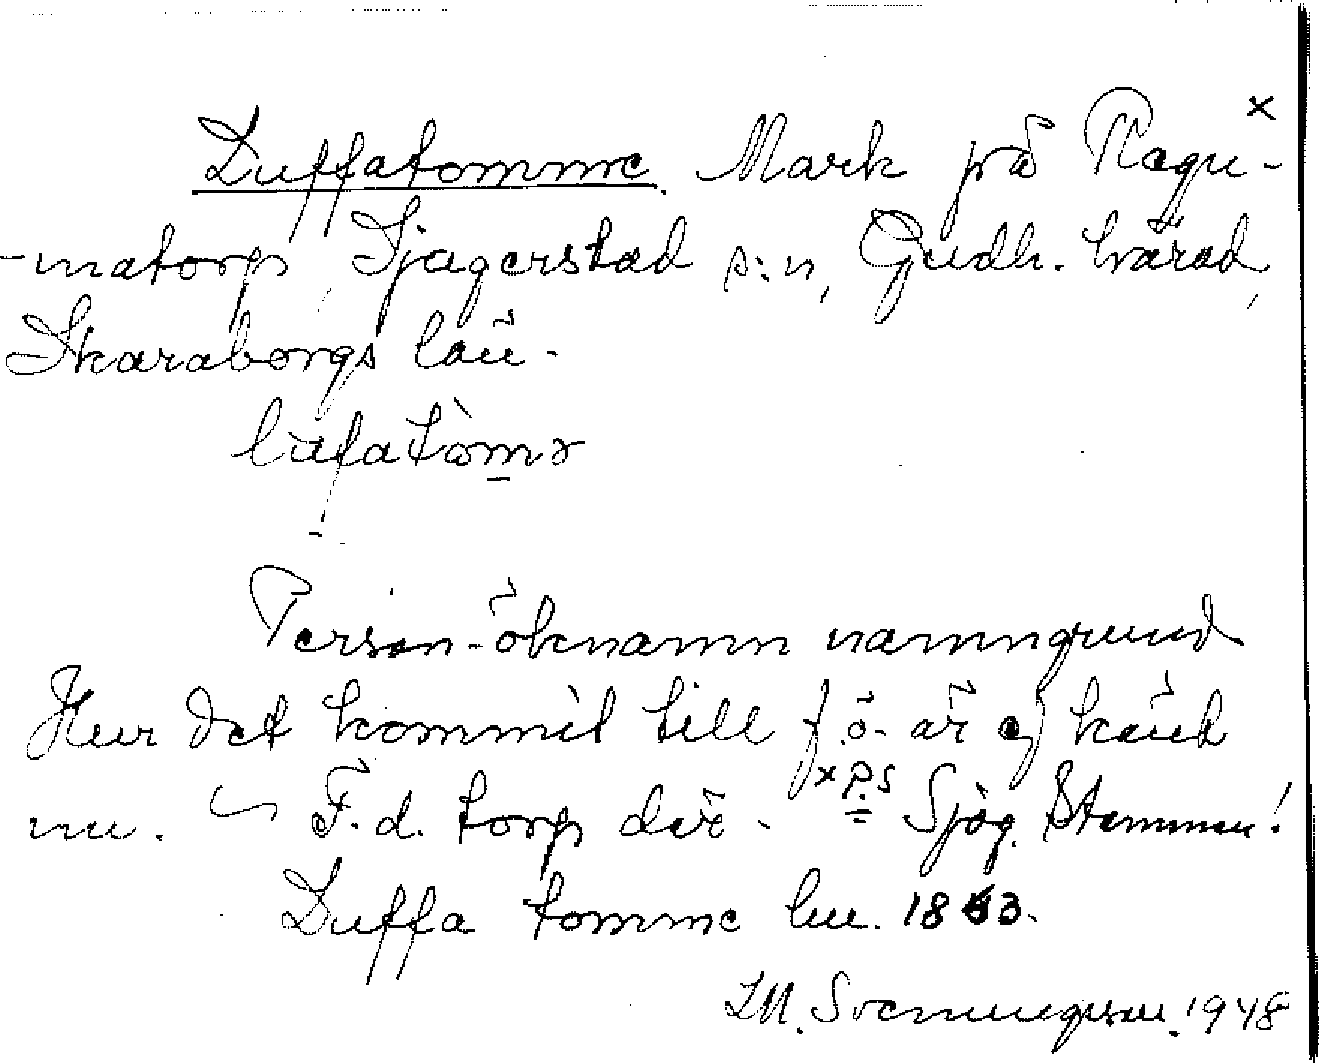 Luffatomme. Mark på Ragn- x
-natorp, Sjogerstad s:n, Gudh. härad,
Skaraborgs län.
lufatòmə
Person-öknamn namngrund
Hur det kommit till f.ö. är ej känd
nu. F.d. torp där. x P.S Sjög. Stommen!
Luffa tomme hu. 1863.
Svenungsson. 1948